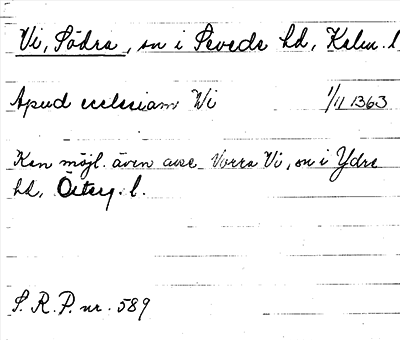 Vi, Södra, sn i Sevede hd, Kalm. l
Apud ecclesiam Wi 1/11 1363
Kan möjl. även avse Norra Vi, sn i Ydre
hd, Österg. l.
S. R. P. nr. 589